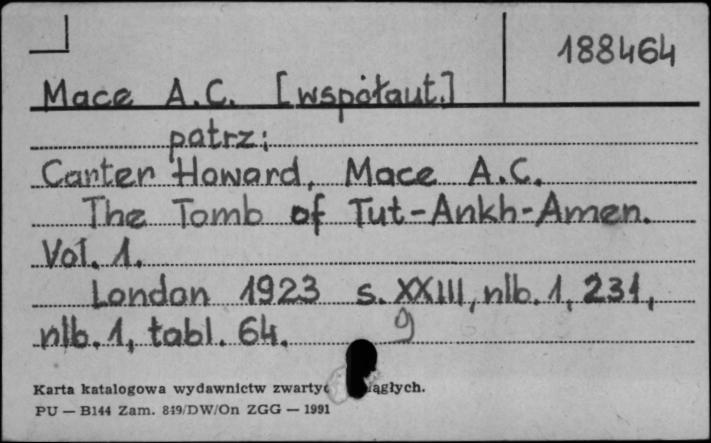 188464
Mace A.C. [współaut.]
patrz:
Carter Howard, Mace A.C.
The Tomb of Tut-Ankh-Amen.
Vol. 1.
London 1923 s. XXIII, nlb. 1, 231,
nlb. 1, tabl. 64.
Karta katalogowa wydawnictw
PU — B144 Zam. 819/DW/On ZGG — 1991